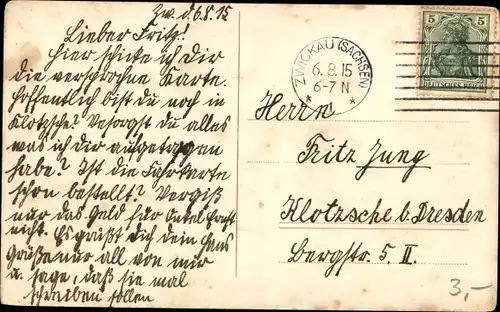 Zw. d. 6.8.15
Lieber Fritz!
Hier schicke ich Dir
die versprochne Karte.
Hoffentlich bist du noch in
Klotzsche? Besorgst du alles
was ich dir aufgetragen
habe? Ist die Fahrkarte
schon bestellt? Vergiß
nur das Geld für Onkel Ernst
nicht. Es grüßt Dich dein Hans
Grüße nur all von mir
u. sage, daß sie mal
schreiben sollen
ZWICKAU (SACHSEN)
6.8.15
6-7 N
5 5
DEUTSCHES REICH
Herrn
Fritz Jung
Klotzsche b. Dresden
Bergstr. 5. II.
3,-